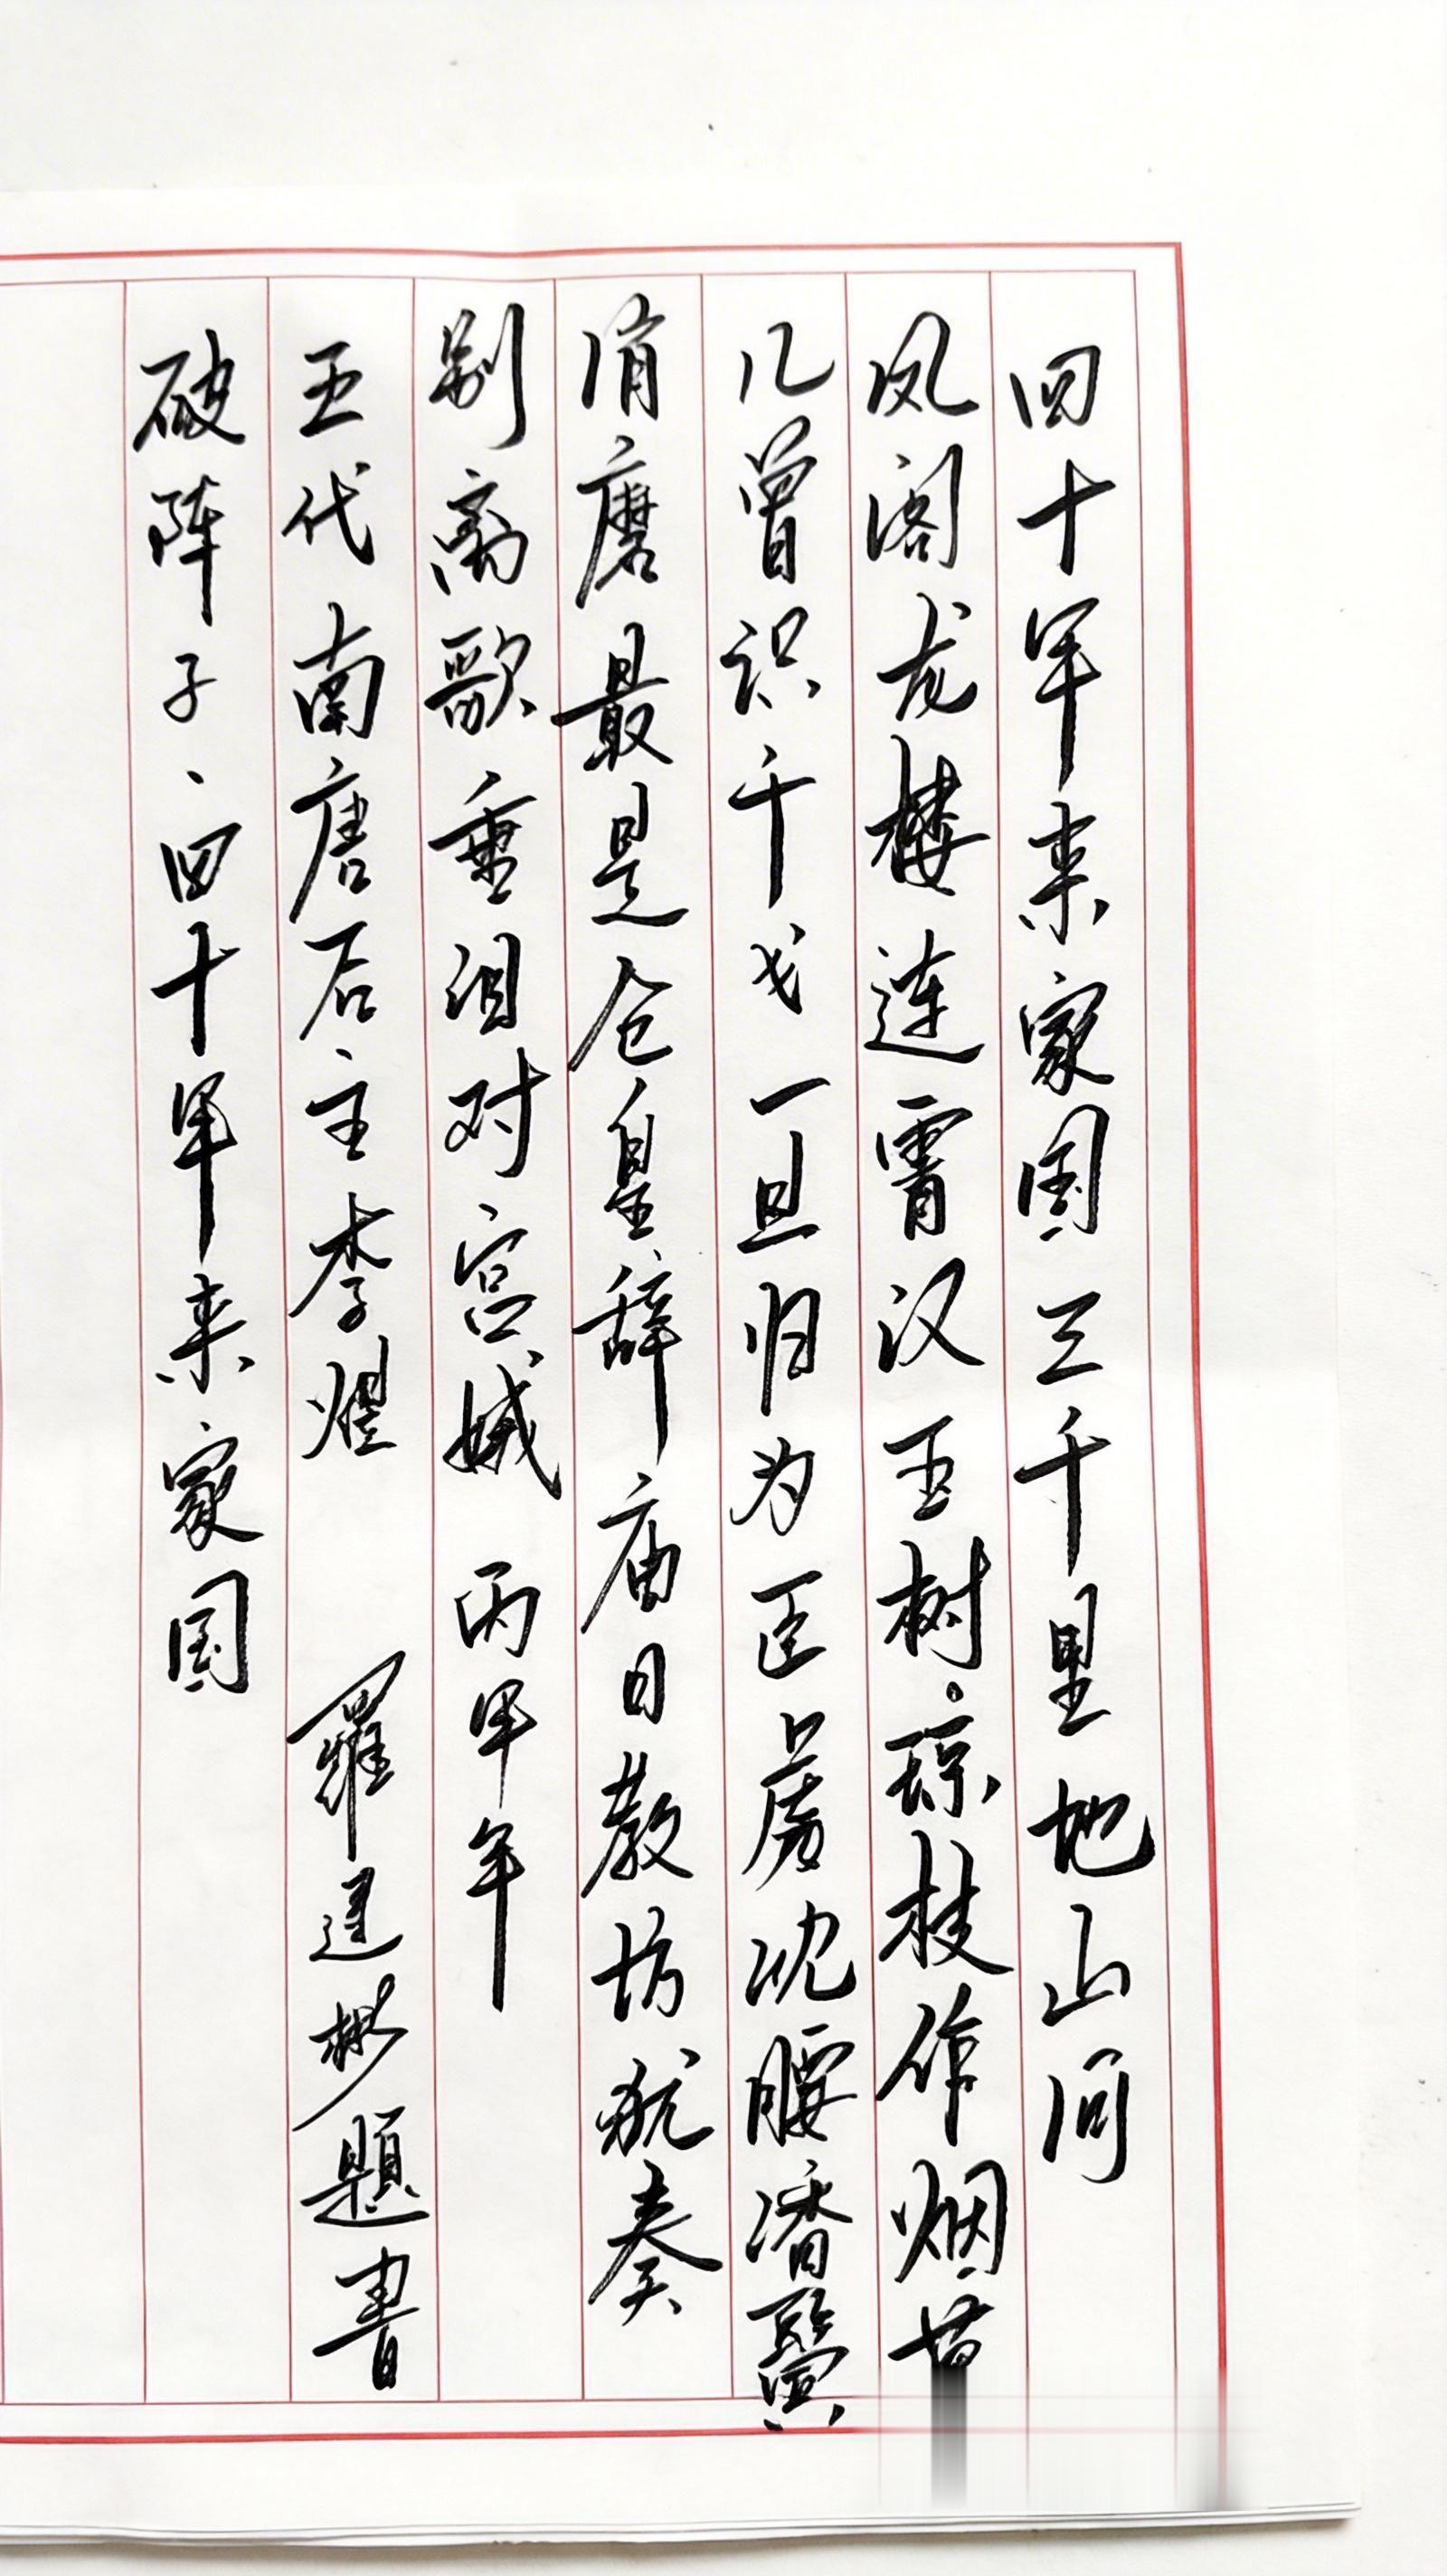 四十年来家国三千里地山河
凤阁龙楼连霄汉玉树琼枝作烟
几曾识干戈一旦归为臣虏沈腰潘鬓
消磨最是仓皇辞庙日教坊犹奏
别离歌垂泪对宫娥 丙年
五代南唐后主李煜 羅彬題書
破阵子、四十年来家国